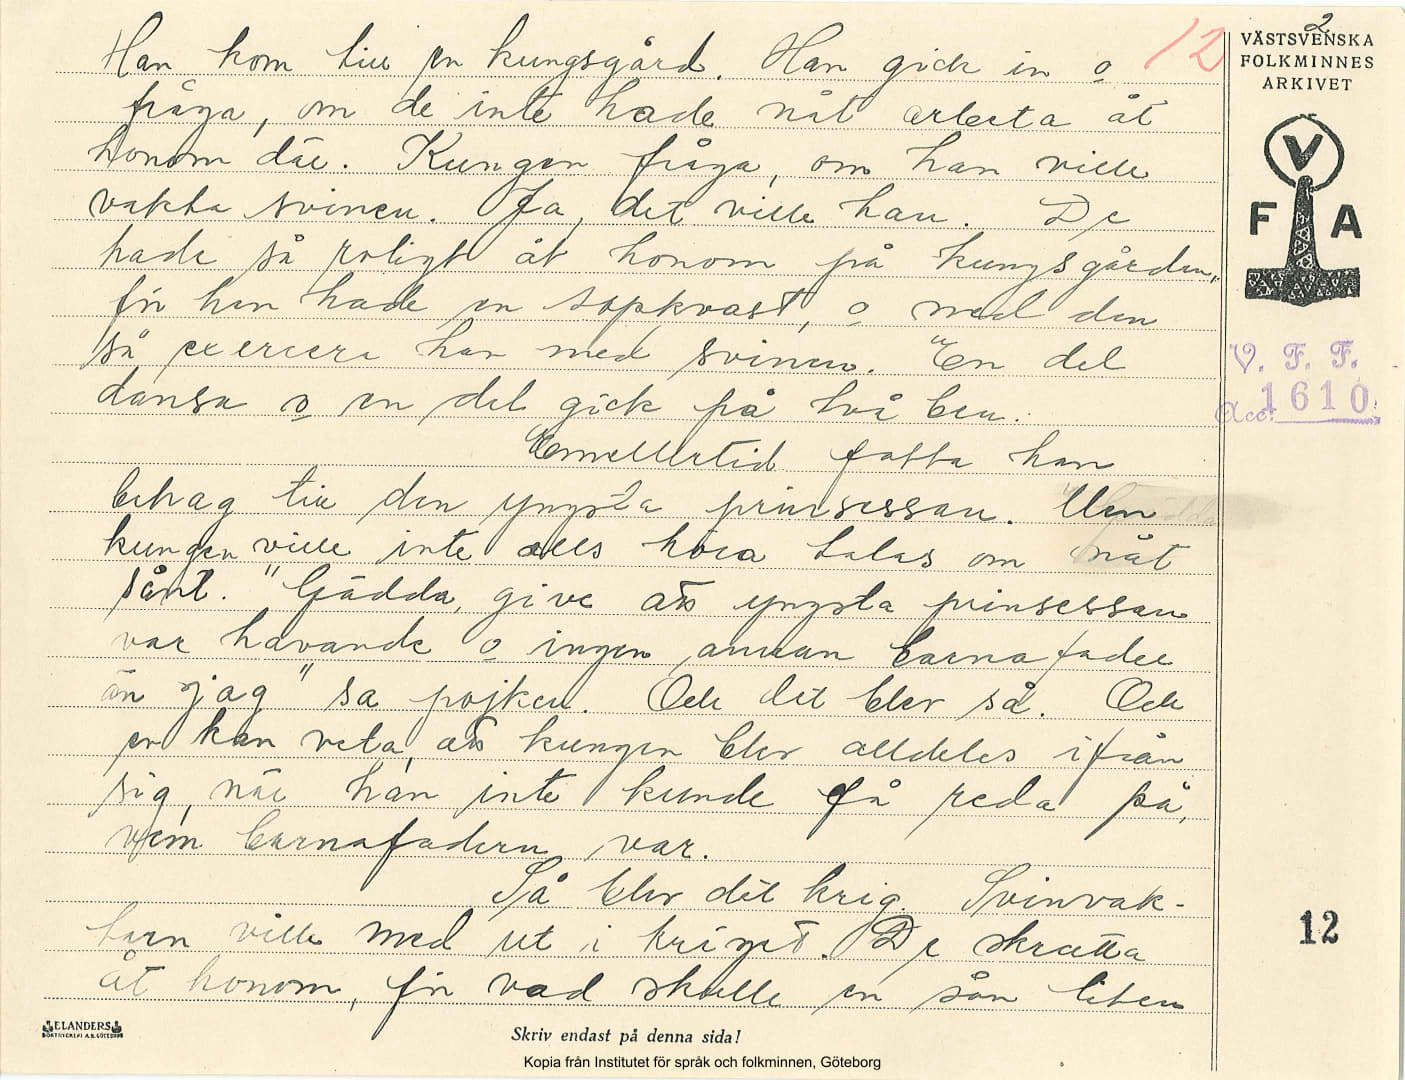 12
2
VÄSTSVENSKA
FOLKMINNES
ARKIVET
V
F A
V. F. F.
Acc: 1610
Han kom till en kungsgård. Han gick in o
fråga, om de inte hade nåt arbeta åt
honom där. Kungen fråga, om han ville
vakta svinen. Ja, det ville han. De
hade så roligt åt honom på kungsgården,
för han hade en sopkvast, o med den
så exercera han med svinen. En del
dansa o en del gick på två ben.
Emellertid fatta han
behag till den yngsta prinsessan. Men
kungen ville inte alls höra talas om nåt
sånt. "Gädda, give att yngsta prinsessan
var havande o ingen annan barnafader
än jag" sa pojken. Och det blev så. Och
en kan veta, att kungen blev alldeles ifrån
sig, när han inte kunde få reda på,
vem barnafadern var.
Så blev det krig. Svinvak-
tarn ville med ut i kriget. De skratta
åt honom, för vad skulle en sån liten
12
ELANDERS
BOKTRYCKERI A.B. GÖTEBORG
Skriv endast på denna sida!
Kopia från Institutet för språk och folkminnen, Göteborg